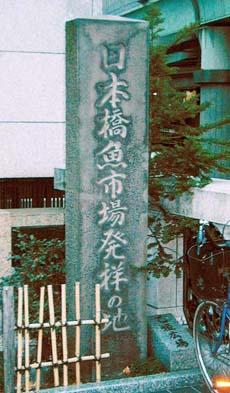 日本橋魚市場発祥の地